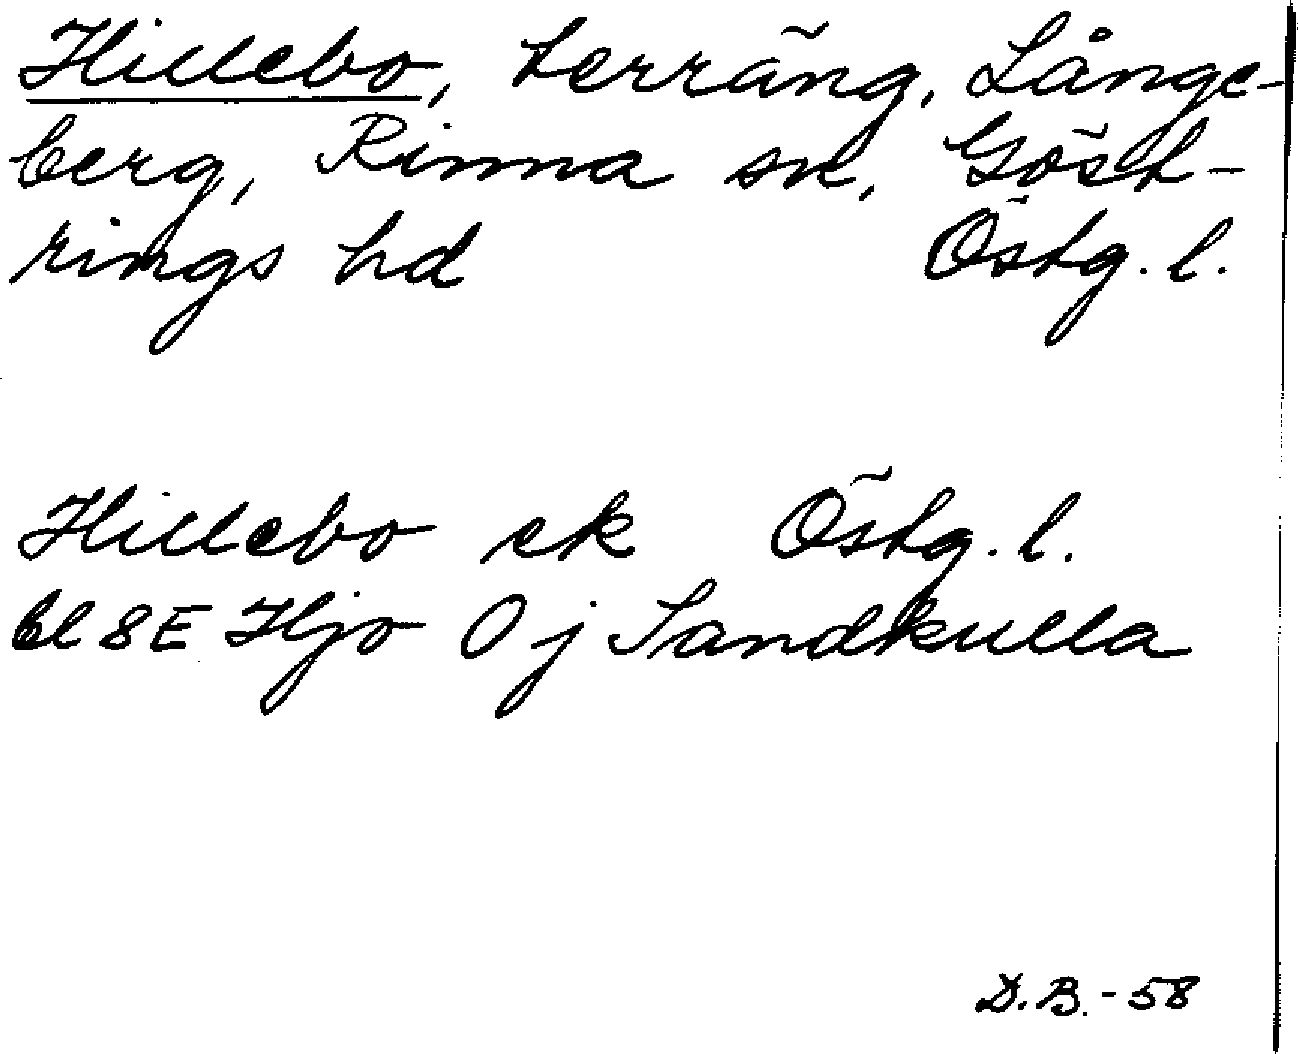 Hillebo, terräng, Långe-
berg, Rinna sn, Göst-
rings hd Östg. l.
Hillebo ek Östg. l.
bl 8E Hjo 0 j Sandkulla
D.B. - 58